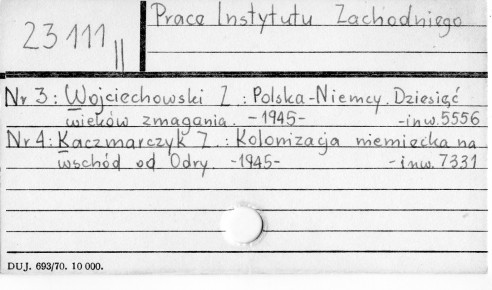 23111 II
Prace Instytutu Zachodniego
Nr 3: Wojciechowski Z.: Polska-Niemcy. Dziesięć
wieków zmagania. -1945- -inw.5556
Nr 4: Kaczmarczyk Z.: Kolonizacja niemiecka na
wschód od Odry. -1945- -inw. 7331
DUJ. 693/70. 10 000.